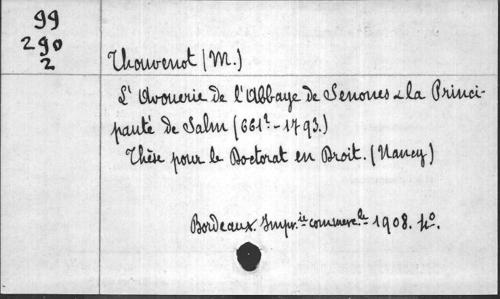 99
290
2
Thouvenot (M.)
L'Avouerie de l'Abbaye de Senones & la Princi-
pauté de Salm (661?-1793.)
Thèse pour le Doctorat en Droit. (Nancy)
Bordeaux. Impr.ie commerc.le 1908. 4o.